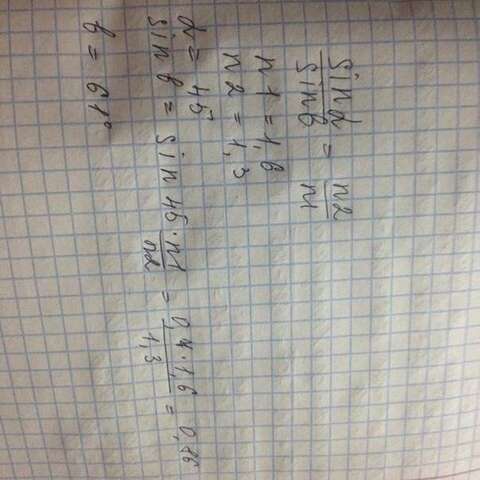 sin α / sin β = n2 / n1
n1 = 1,6
n2 = 1,3
α = 45°
sin β = sin 45 · n1 / n2 = 0,7 · 1,6 / 1,3 = 0,86
β = 61°